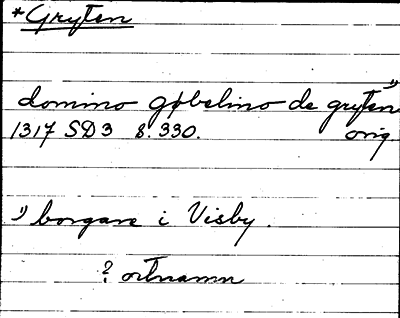 *Gryten
domino gøbelino de gryten 1)
1317 SD3 s. 330. orig.
1) borgare i Visby.
? ortnamn